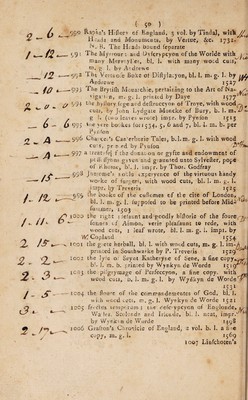 ( 50 )
2 - 6 - 990 Rapin's History of England, 3 vol. by Tindal, with
Heads and Monuments, by Vertue, &c. 1732.
N. B. The Heads bound separate
1 - 12 - 991 The Myrrour: and Dyscrypcyon of the Worlde with
many Mervayles, bl. l. with many wood cuts,
m. g. l. by Andrewe
992 The Vertuose Boke of Distylacyon, bl. l. m. g. l. by
Andrewe 1527
- 10 - 993 The Brytish Monarchie, pertaining to the Art of Navigation, m. g. l. printed by Daye
2 - 0 - 0 994 the hystorye sege and destruccyon of Troye, with wood
cuts, by John Lydgate Moncke of Bury, b. l. m.
g. l. (one leave wrote) impr. by Pynson 1513
- 6 - 6 995 the yere bookes for 1534, 5, 6 and 7, bl. l. m. b. per
Pynson
2 - 4 - 996 Chaucer's Caunterburie Tales, b. l. m. g. l. with wood
cuts, printed by Pynson
2 - 4 - 997 a treatise of the donation or gyfte and endowment of
possessyons gyven and graunted unto Sylvester, pope
of Rhome, bl. l. impr. by Thos. Godfray
- 15 - 998 Jherome's noble experyence of the vertuous handy
worke of surgeri, with wood cuts, m. g. l. bl. l.
impr. by Treveris
1 - 12 - 999 the booke of the customes of the citie of London,
bl. l. m. g. l. supposed to be printed before Midsummer, 1509
1 - 11 - 6 1000 the right plesaunt and goodly historie of the foure
sonnes of Aimon, verie pleasaunt to rede, with
wood cuts, 1 leaf wrote, bl. l. m. g. l. impr. by
W. Copland 1554
2 - 15 - 1001 the grete herball, bl. l. with wood cuts, m. g. l. imprinted in Southwarke by P. Treveris 1529
2 - 2 - 1002 the lyfe of Seynt Katheryne of Sene, a fine copy,
bl. l. m. b. printed by Wynkyn de Worde
2 - 3 - 1003 the pilgrymage of Perfeccyon, a fine copy. with
wood cuts, b. l. m. g. l. by Wynkyn de Worde
1531
1 - 5 - 1004 the floure of the commandements of God, bl. l.
with wood cuts, m. g. l. Wynkyn de Worde 1521
3 - 1005
Wales, Scotlande and Irlande, bl. l. neat, impr.
by Wynkyn de Worde 1498
2 - 17 - 1006 Grafton's Chronicle of England, 2 vol. b. l. a fine
copy, m. g. l. 1569
1007 Linschoten's